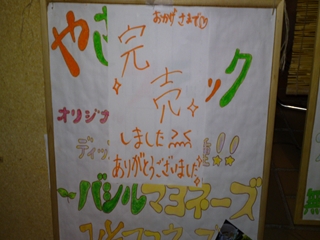 おかげさまで
完売
しました
ありがとうございました
やさ
ック
オリジナ
ディッ
!!
バジルマヨネーズ